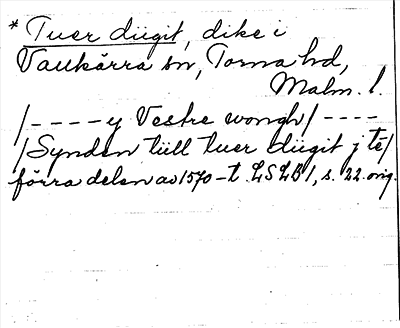 * Tuer diigit, dike i
Vallkärra sn, Torna hd,
Malm. l.
/----y Vestre wongh/----
/Synden tiill tuer diigit j té/
förra delen av 1570-t. LSLB 1, s. 22. orig.